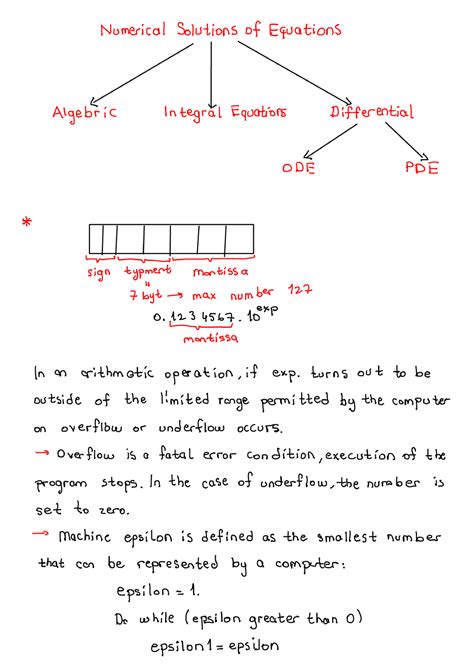 Numerical Solutions of Equations
Algebric Integral Equations Differential
ODE PDE
*
sign typment mantissa
7 byt → max number 127
0.1234567.10^exp
mantissa
In an arithmatic operation, if exp. turns out to be
outside of the limited range permitted by the computer
an overflow or underflow occurs.
→ Overflow is a fatal error condition, execution of the
program stops. In the case of underflow, the number is
set to zero.
→ Machine epsilon is defined as the smallest number
that can be represented by a computer:
epsilon = 1.
Do while (epsilon greater than 0)
epsilon1 = epsilon